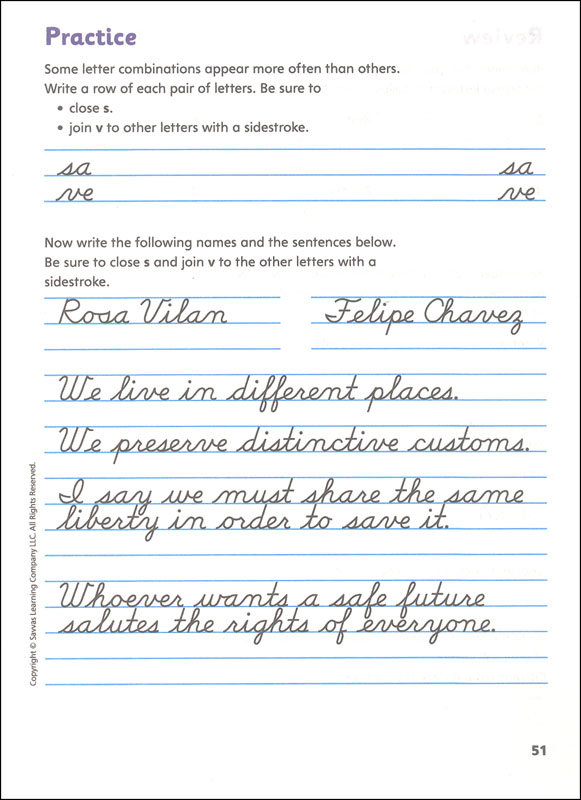 Practice
Some letter combinations appear more often than others.
Write a row of each pair of letters. Be sure to
• close s.
• join v to other letters with a sidestroke.
sa sa
ve ve
Now write the following names and the sentences below.
Be sure to close s and join v to the other letters with a
sidestroke.
Rosa Vilan Felipe Chavez
We live in different places.
We preserve distinctive customs.
I say we must share the same
liberty in order to save it.
Whoever wants a safe future
salutes the rights of everyone.
Copyright © Savvas Learning Company LLC. All Rights Reserved.
51